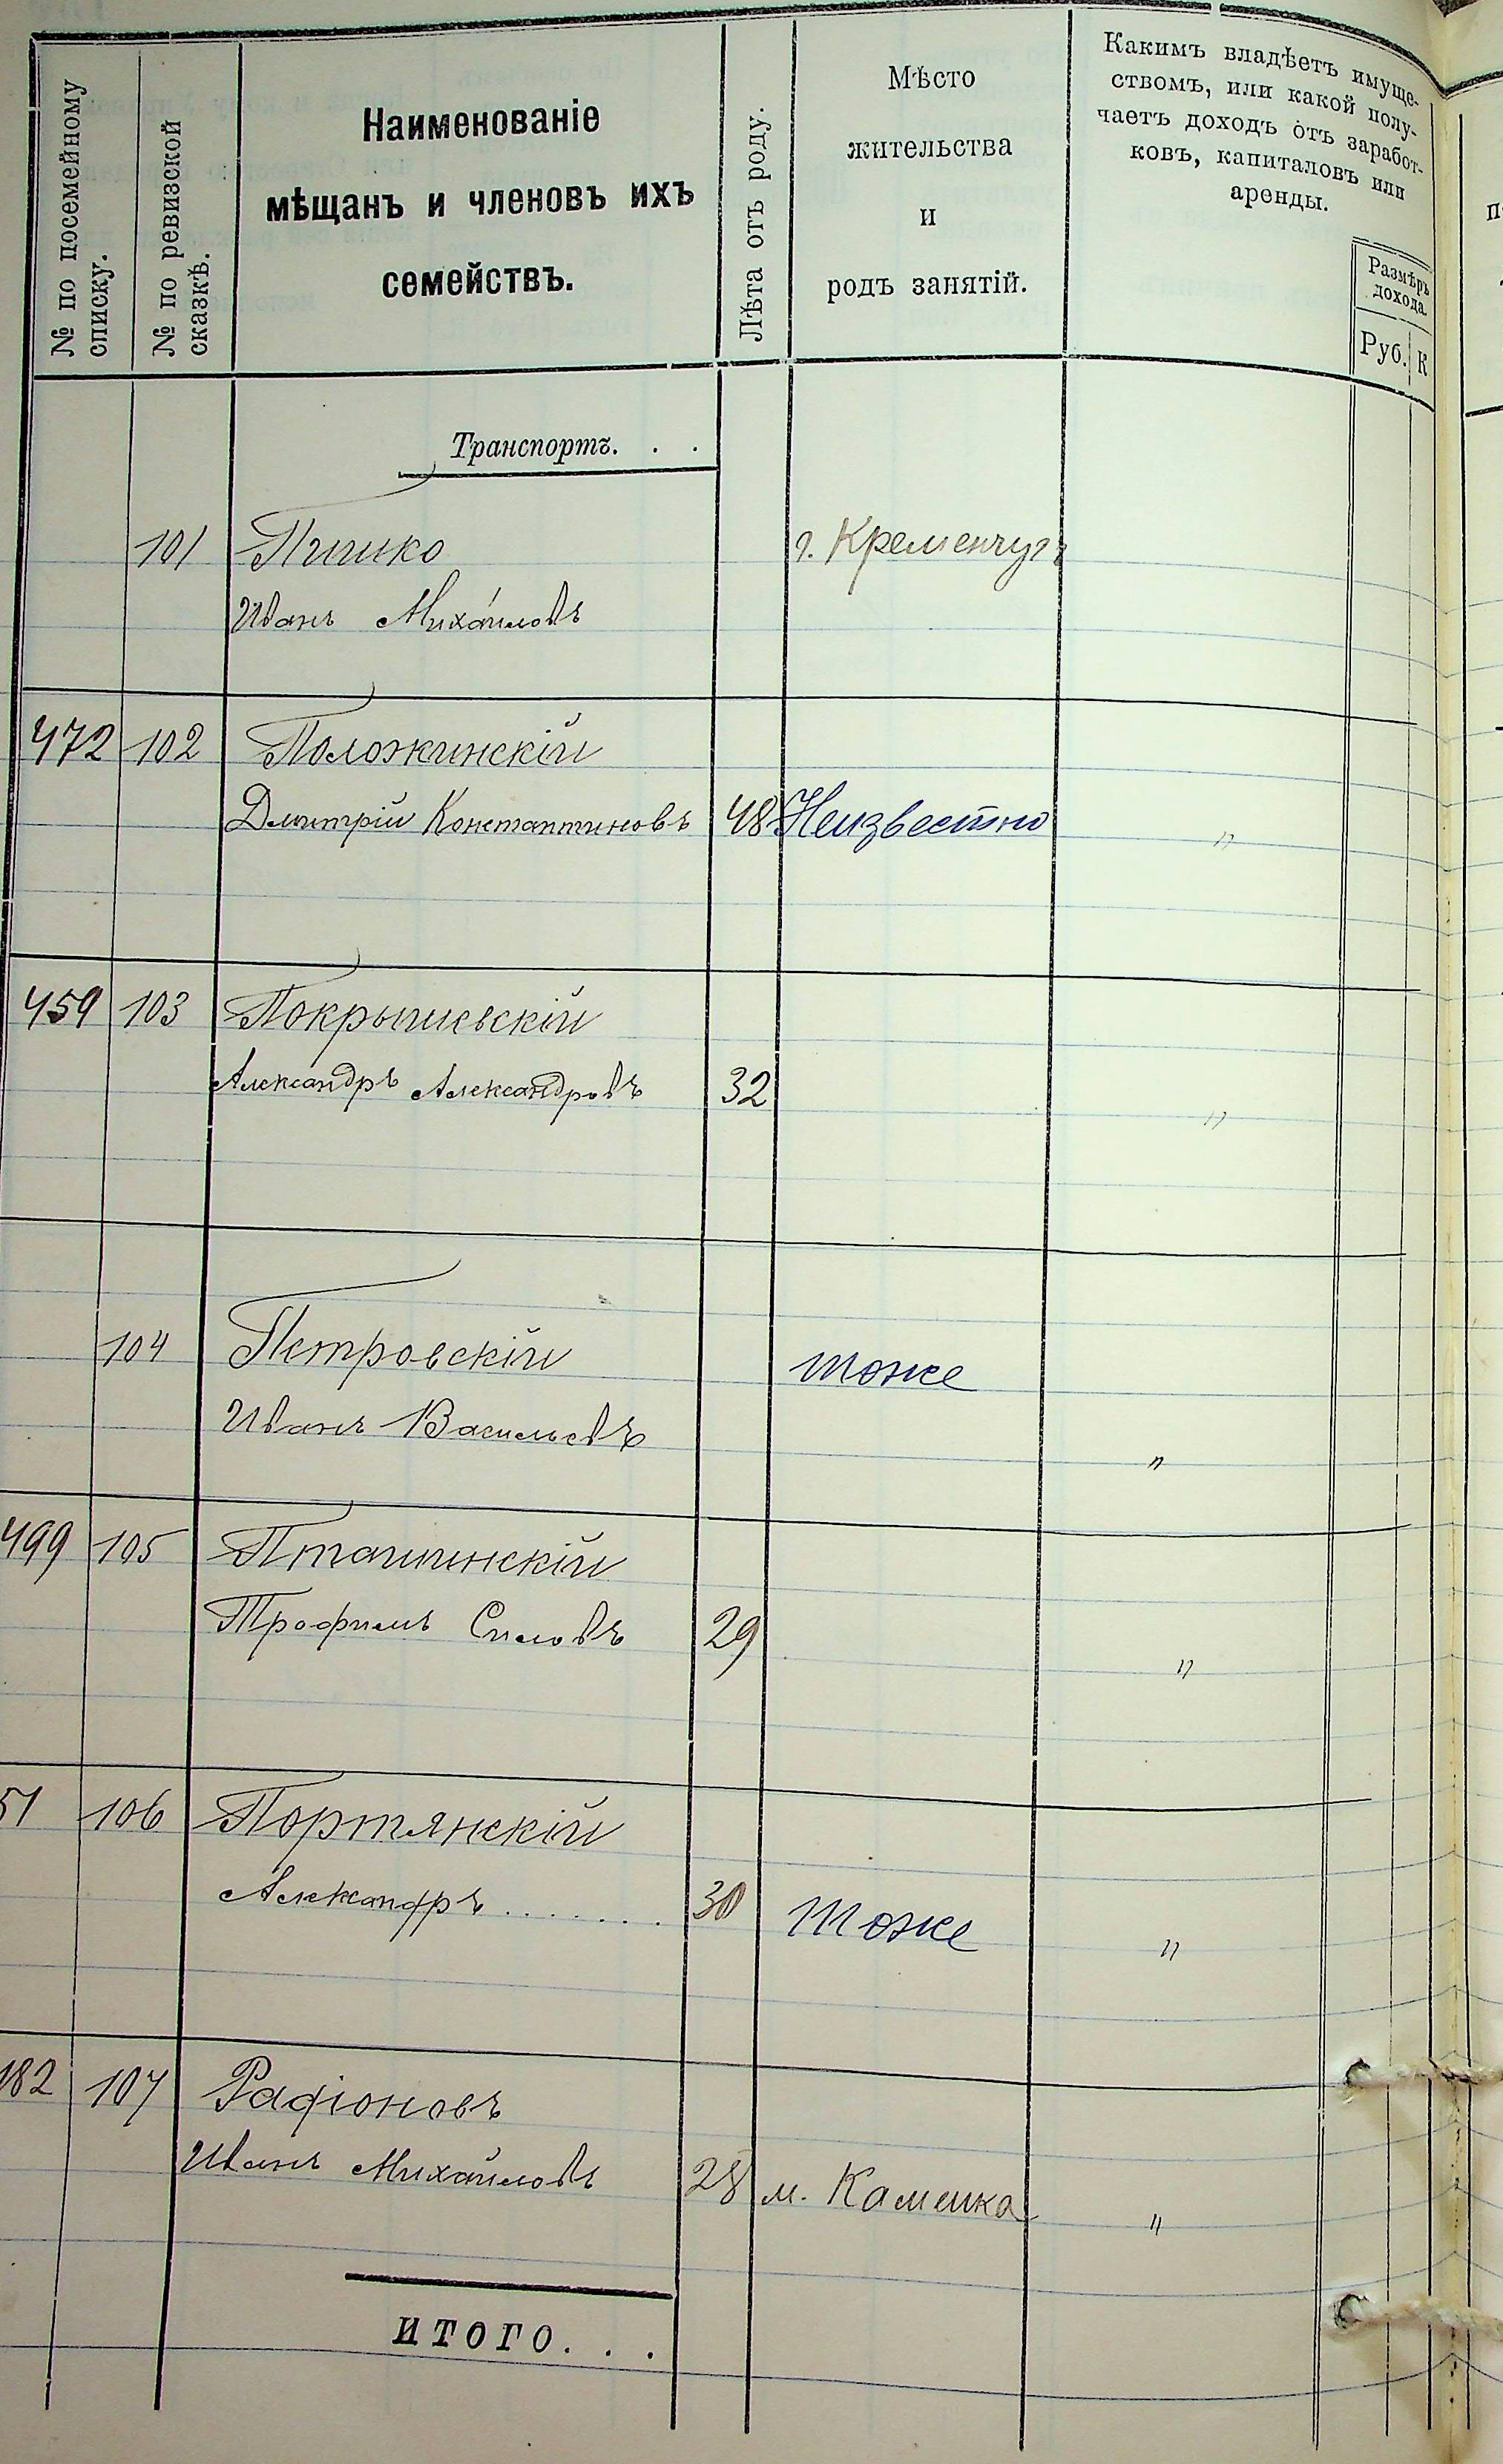 № по посемейному
списку.
№ по ревизской
сказкѣ.
Наименованіе
мѣщанъ и членовъ ихъ
семействъ.
Лѣта отъ роду.
Мѣсто
жительства
и
родъ занятій.
Какимъ владѣетъ имуще-
ствомъ, или какой полу-
чаетъ доходъ отъ заработ-
ковъ, капиталовъ или
аренды.
Размѣръ
дохода.
Руб. К
Транспортъ. . .
101 г. Кременчугъ
Иванъ Михайловъ
472 102 Положинскій
Дмитрій Константиновъ 48 Неизвестно "
459 103 Покрышевскій
Александръ Александровъ 32 "
104 Петровскій тоже
Иванъ Васильевъ "
499 105 Пташинскій
Трофимъ Силовъ 29 "
51 106 Портянскій
Александръ ....... 30 тоже "
182 107 Радіоновъ
Иванъ Михайловъ 28 м. Каменка "
ИТОГО. . .